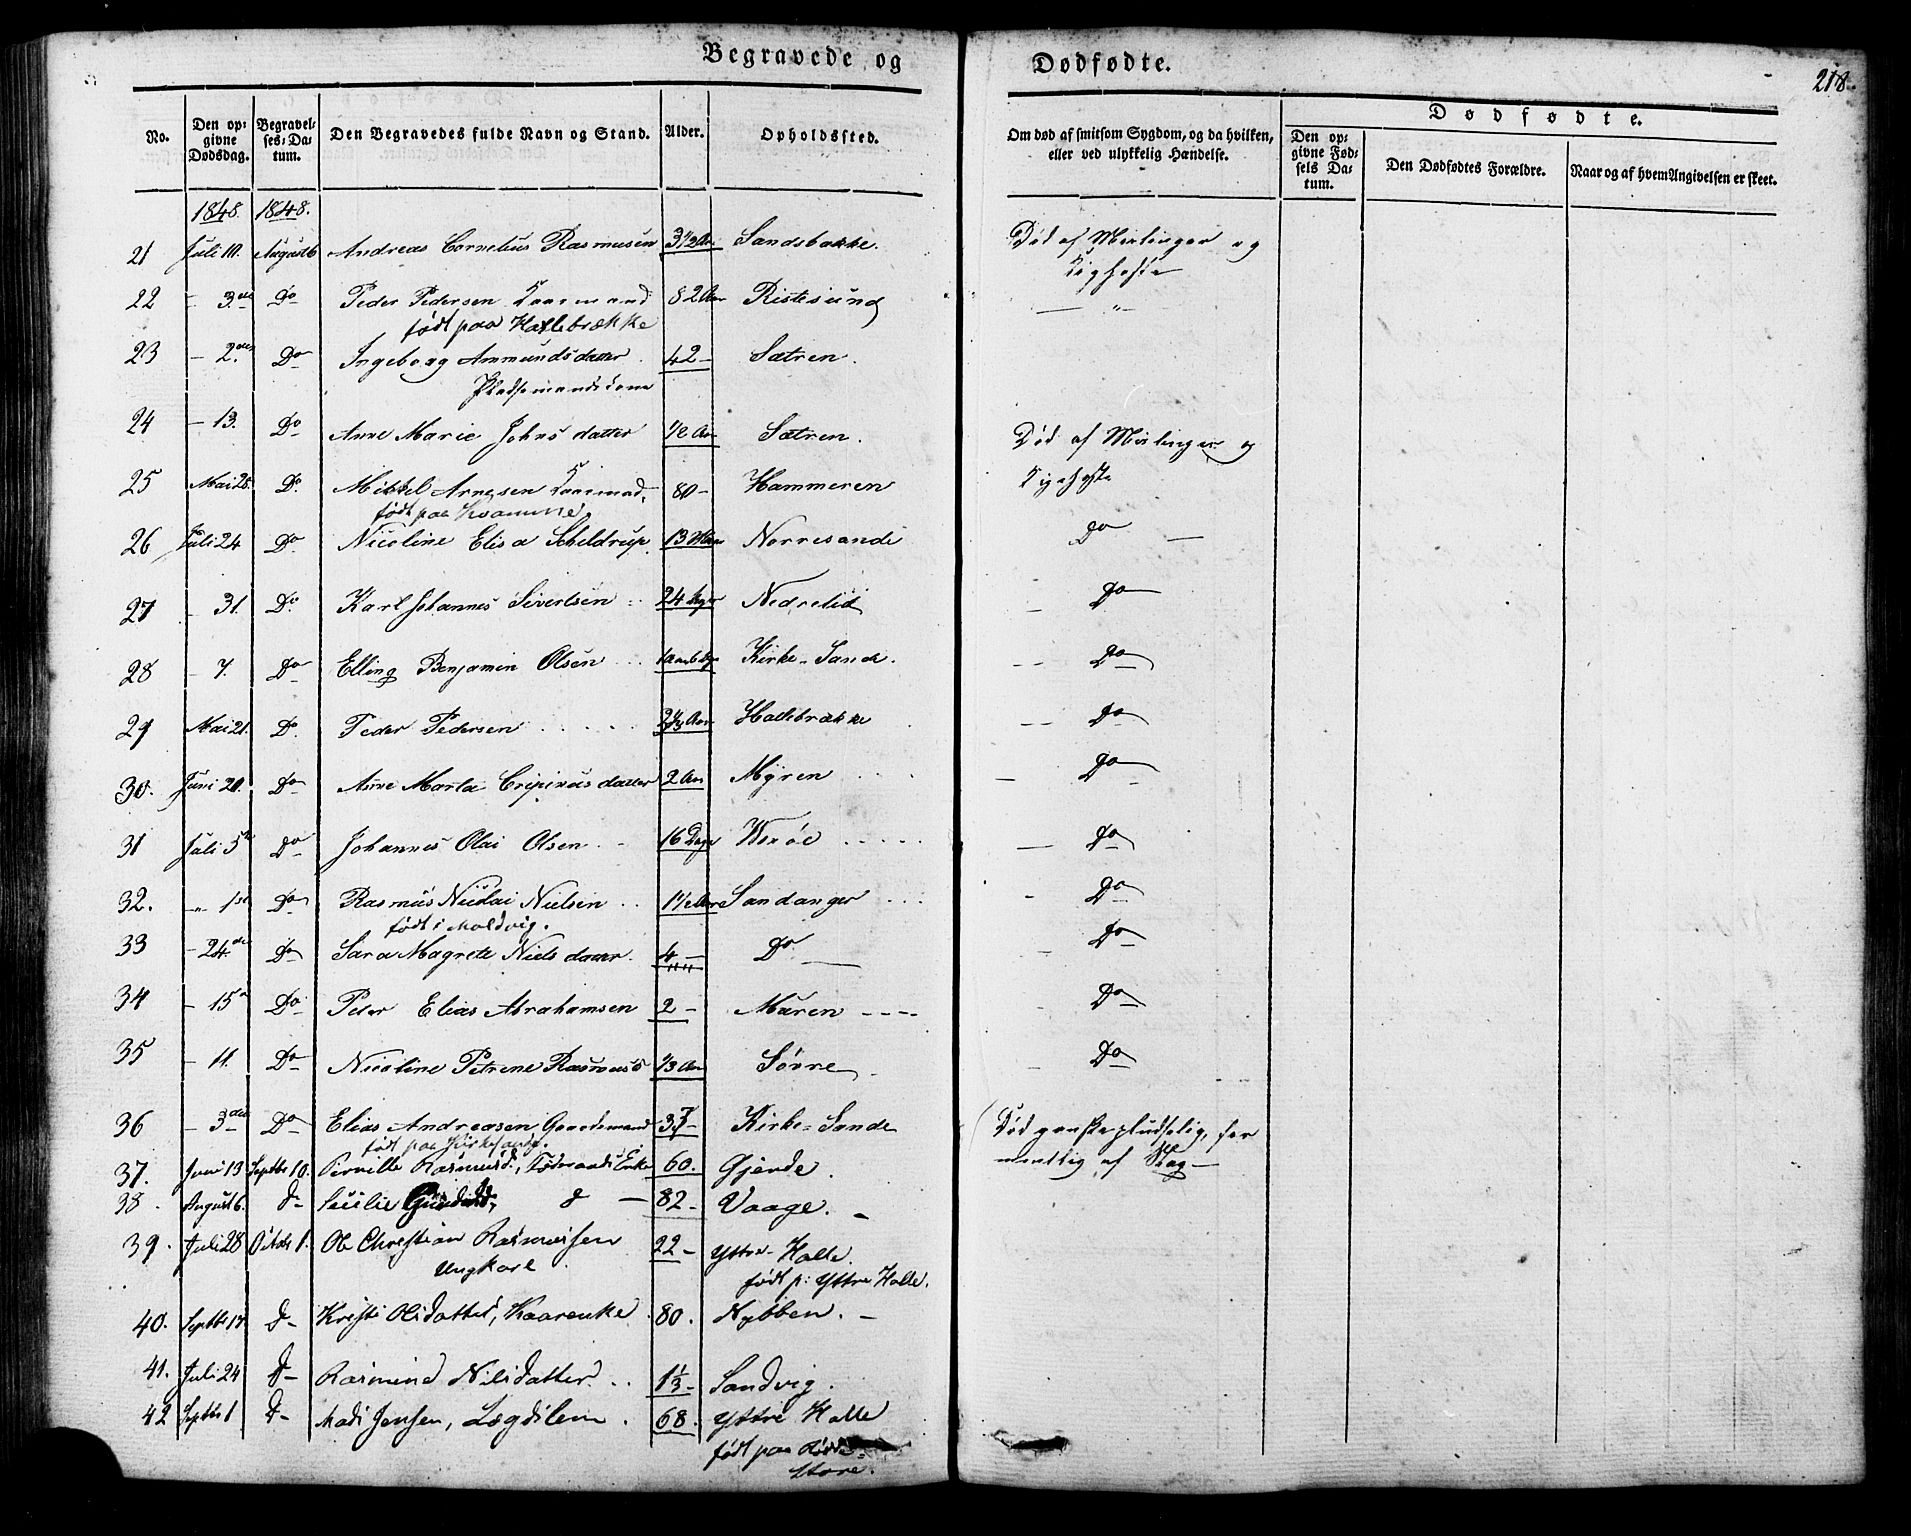 Begravede og Dødfødte.
218.
No. Den opgivne Dødsdag. Begravelses-Datum. Den Begravedes fulde Navn og Stand. Alder. Opholdssted. Om død af smitsom Sygdom, og da hvilken, eller ved ulykkelig Hændelse. Dødfødte. Den opgivne Fødsels Datum. Den Dødfødtes Forældre. Naar og af hvem Angivelsen er skeet.
1848. 1848.
21 Juli 10. August 6 Andreas Cornelius Rasmusen 3 1/2 Aar Sandsbakke. Død af Meslinger og
Kighoste
22 — 3die Do Peder Pedersen Kaarmand 82 Aar Ristesund — " —
født paa Hatlebrække
23 — 2den Do Ingeborg Ammundsdatter 42 — Sætren.
Pladsemandskone
24 — 13. Do Anne Marie Johnsdatter 1/2 Aar Sætren. Død af Meslinger og
Kighoste
25 Mai 28. Do. Mikkel Arnesen Kaarmand, 80 — Hammeren
født paa Kvamme,
26 Juli 24 Do. Nicoline Elisa Scheldrup. 13 Norresande Do —
27 — 31. Do. Karl Johannes Sivertsen 24 Nedrelid — Do
28 — 7. Do Elling Benjamin Olsen Kirke-Sande. — Do
29 Mai 21. Do. Peder Pedersen Hatlebrække — Do
30. Juni 20. Do Anne Marta Cripinusdatter 2 Aar Myren — Do
31 Juli 5te Do Johannes Olai Olsen 16 Dage — Do
32. " 1ste Do Rasmus Nicolai Nielsen 1 1/2 Aar Sandanger - Do
født i Moldvig.
33 — 24de Do Sara Magrete Nielsdatter. 4 — Do — - Do
34 — 15 Do Peder Elias Abrahamsen 2 — Muren - Do
35 — 11. Do Nicoline Petrine Rasmusd 1/3 Aar Sørre - Do
36 — 3die Do Elias Andreasen Gaardmand 37 — Kirke-Sande Død ganske pludselig, for
født paa Kirkesande. mentlig af Slag —
37. Juni 13 Septbr 10. Pernille Rasmusd., Enke 60. Gjerde.
38. August 6. D— Cecilie d — 82 — Vaage. —
39. Juli 28 Octobr 1. Ole Christian Rasmussen 22 — Yttre Halle.
Ungkarl. født p: Yttre Halle.
40. Septbr D— Kristi Olsdatter, Kaarenke. 80. Nybben. —
41. Juli 24 D— Rasmine Nilsdatter. 1 1/3 — Sandvig.
42 Septbr 1 D— Mads Jensen, Lægdslem. 68. Yttre Halle
født paa